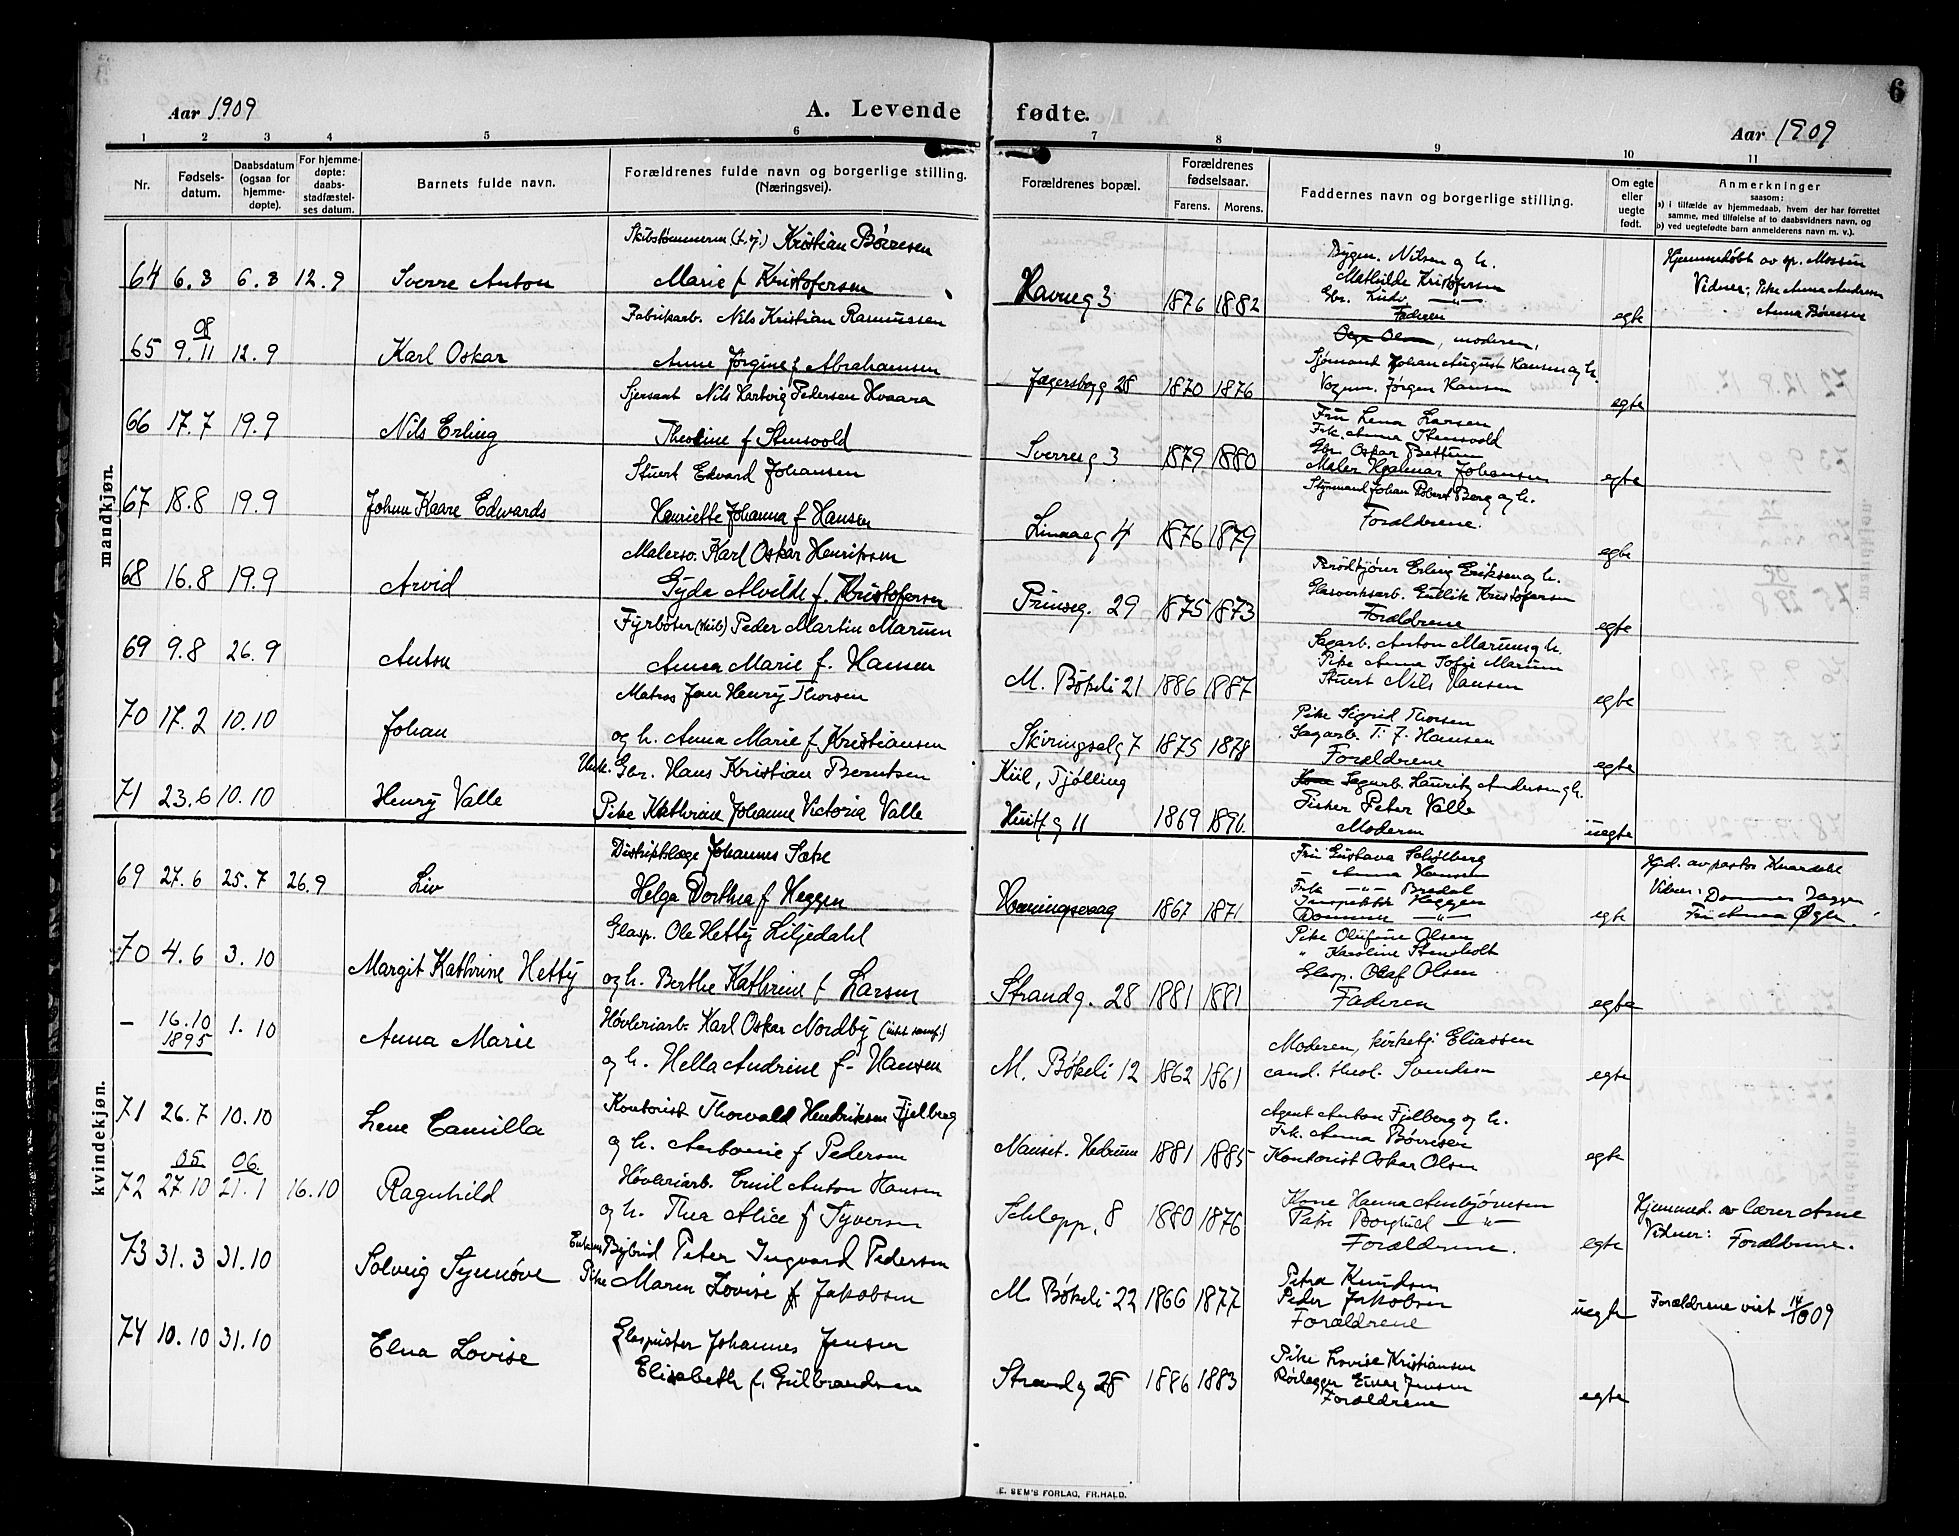 6
Aar 1909
A. Levende fødte.
Aar 1909
1 2 3 4 5 6 7 8 9 10 11
Nr.
Fødsels-
datum.
Daabsdatum
(ogsaa for
hjemme-
døpte).
For hjemme-
døpte:
daabs-
stadfæstel-
ses datum.
Barnets fulde navn.
Forældrenes fulde navn og borgerlige stilling.
(Næringsvei).
Forældrenes bopæl.
Forældrenes
fødselsaar.
Farens. Morens.
Faddernes navn og borgerlige stilling.
Om egte
eller
uegte
født.
Anmerkninger
saasom:
a) i tilfælde av hjemmedaab, hvem der har forrettet
samme, med tilføielse af to daabsvidners navn, og
b) ved uegtefødte barn anmelderens navn m. v.).
mandkjøn.
Kristian Børresen
64 6.8 6.8 12.9 Sverre Anton Marie f Kristofersen
Havneg 3 1876 1882 egte
Bygm. Nilsen og h.
Mathilde Kristofersen
Gbr. Ludv. —"—
Faderen
Hjemmedøbt av
Vidner: Pike Anna Andresen
Anna Børresen
Fabrikarb. Nils Kristian Rasmussen
08
65 9.11 12.9 Karl Oskar Anne Jørgine f Abrahamsen
Jægersborgg 28 1870 1876 egte
moderen,
Sjømand Johan August Hansen og h.
Vognm. Jørgen Hansen
Sjersant Nils Hartvig Pedersen Hvaara
66 17.7 19.9 Nils Erling Theoline f Stensvold
Sverreg 3 1879 1880 egte
Fru Lena Larsen
Frk. Anna Stensvold
Gbr. Oskar Bettum
Maler Hjalmar Johansen
Stuert Edvard Johansen
67 18.8 19.9 Johan Kaare Edwards Henriette Johanna f Hansen
Linaaeg 4 1876 1879 egte
Styrmand Johan Robert Berg og h.
Forældrene.
Malersv. Karl Oskar Henriksen
68 16.8 19.9 Arvid Gyda Alvilde f. Kristofersen
Prinseg. 29 1875 1873 egte
Brødkjører Erling Eriksen og h.
Glasverksarb. Kristofersen
Forældrene
Fyrbøter (skib) Peder Martin Marum
69 9.8 26.9 Anton Anna Marie f. Hansen
M. Bøkeli 21 1886 1887 egte
Sagarb. Anton Marum og h.
Pike Anna Sofie Marum
Stuert Nils Hansen
Matros Jon Henry Thorsen
70 17.2 10.10 Johan og h. Anna Marie f Kristiansen
Skiringsalg 7 1875 1878 egte
Pike Sigrid Thorsen
Sagarb. T. J. Hansen
Forældrene
Unk. Gbr. Hans Kristian Berntsen
71 23.6 10.10 Henry Valle Pike Kathrine Johanne Victoria Valle
Kiil, Tjølling
11 1869 1890 uegte
Sagarb. Lauritz Andersen og h.
Fisker Peter Valle
Moderen
kvindekjøn.
Distriktslæge Johannes Sæbø
69 27.6 25.7 26.9 Liv Helga Dorthea f Heggen
Honningsvaag 1867 1871 egte
Fru Gustava Schølberg
Anna Hansen
Frk —"— Bredal
Inspektør Heggen
—"—
Hjd. av pastor
Vidner:
Fru Anna
Glasp. Ole Hetty Liljedahl
70 4.6 3.10 Margit Kathrine Hetty og h. Berthe Kathrine f Larsen
Strandg. 28 1881 1881 egte
Pike Olufine Olsen
" Karoline Stensholt
Glasp. Olaf Olsen
Faderen
Høvleriarb. Karl Oskar Nordby
— 16.10 1895 1.10 Anna Marie og h. Hella Andrine f. Hansen
M. Bøkeli 12 1862 1861 egte
Moderen, kirketj. Eliassen
cand. theol. Svendsen
Kontorist Thorvald Hendriksen Fjelberg
71 26.7 10.10 Lene Camilla og h. Antonie f Pedersen
Nanset. Hedrum 1881 1885 egte
Agent Anton Fjelberg og h.
Frk. Anna Børresen
Kontorist Oskar Olsen
05 06
Høvleriarb. Emil Anton Hansen
72 27.10 21.1 16.10 Ragnhild og h. Thea Alice f Syversen
Schlepp. 8 1880 1876 egte
Kone Hanna Arnbjørnsen
Pike Borghild —"—
Forældrene.
Hjemmed. av lærer Arne
Vidner: Forældrene.
Enkem Peter Ingvard Pedersen
73 31.3 31.10 Solveig Synnøve Pike Maren Lovise f Jakobsen
M. Bøkeli 22 1866 1877 uegte
Petra Knudsen
Peder Jakobsen
Forældrene
Forældrene viet 14/10 09
Glaspuster Johannes Jensen
74 10.10 31.10 Elna Lovise Elisabeth f. Gulbrandsen
Strandg 28 1886 1883 egte
Pike Lovise Kristiansen
Rørlægger Einar Jensen
Forældrene
E. SEM'S FORLAG, FR.HALD.